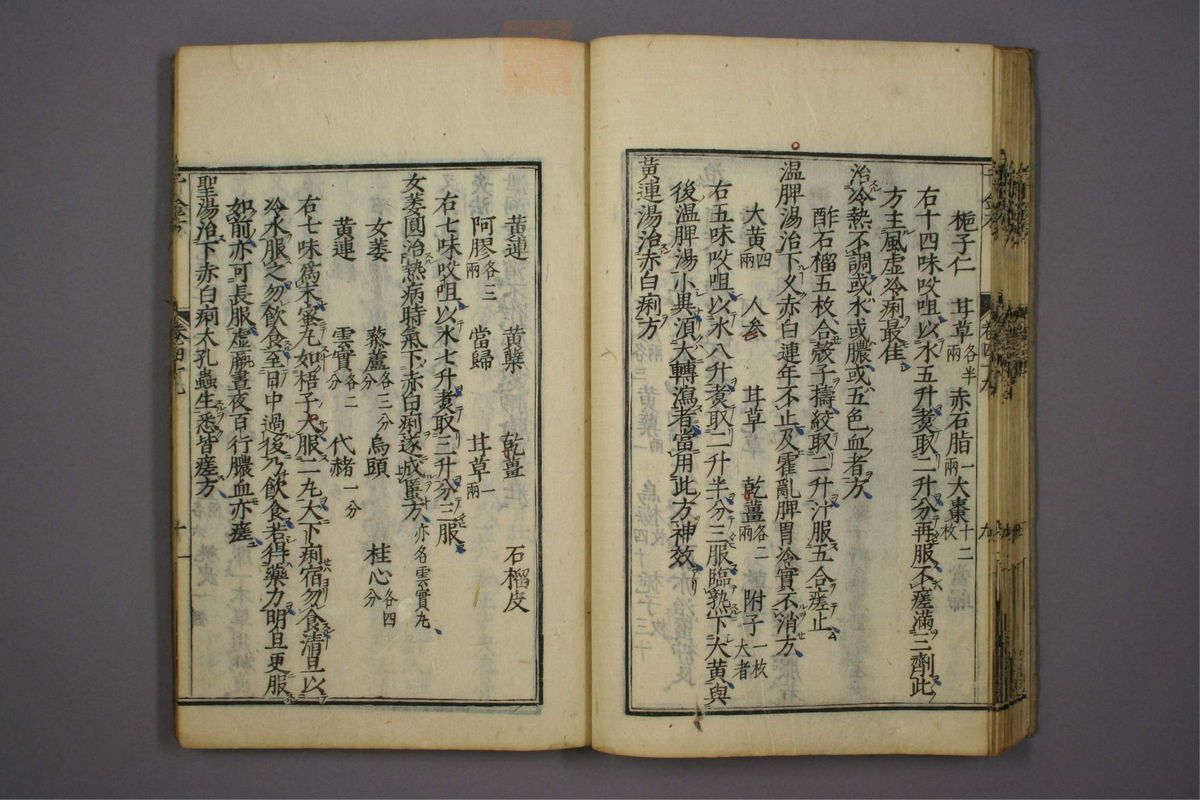 梔子仁 甘草各半兩 赤石脂一兩 大棗十二枚
右十四味㕮咀以水五升煑取二升分再服不瘥滿三劑此
方主風虛冷痢最佳
治冷熱不調或水或膿或五色血者方
酢石榴五枚合殼子擣絞取二升汁服五合瘥止
温脾湯治下久赤白連年不止及霍亂脾胃冷實不消方
大黄四兩 人參 甘草 乾薑各二兩 附子一枚大者
右五味㕮咀以水八升煑取二升半分三服臨熟下大黄與
後温脾湯小異湏大轉瀉者當用此方神效
黄連湯治赤白痢方
黄連 黄蘗 乾薑 石榴皮
阿膠各三兩 當歸 甘草一兩
右七味㕮咀以水七升煑取三升分三服
女萎圓治熱病時氣下赤白痢遂成䘌方亦名雲實丸
女萎 藜蘆各三分 烏頭 桂心各四分
黄連 雲實各二分 代赭一分
右七味爲末蜜丸如梧子大服二丸大下痢宿勿食清旦以
冷水服之勿飲食至日中過後乃飲食若得藥力明旦更服
如前亦可長服虛羸晝夜百行膿血亦瘥
聖湯治下赤白痢大孔蟲生悉皆瘥方
十一